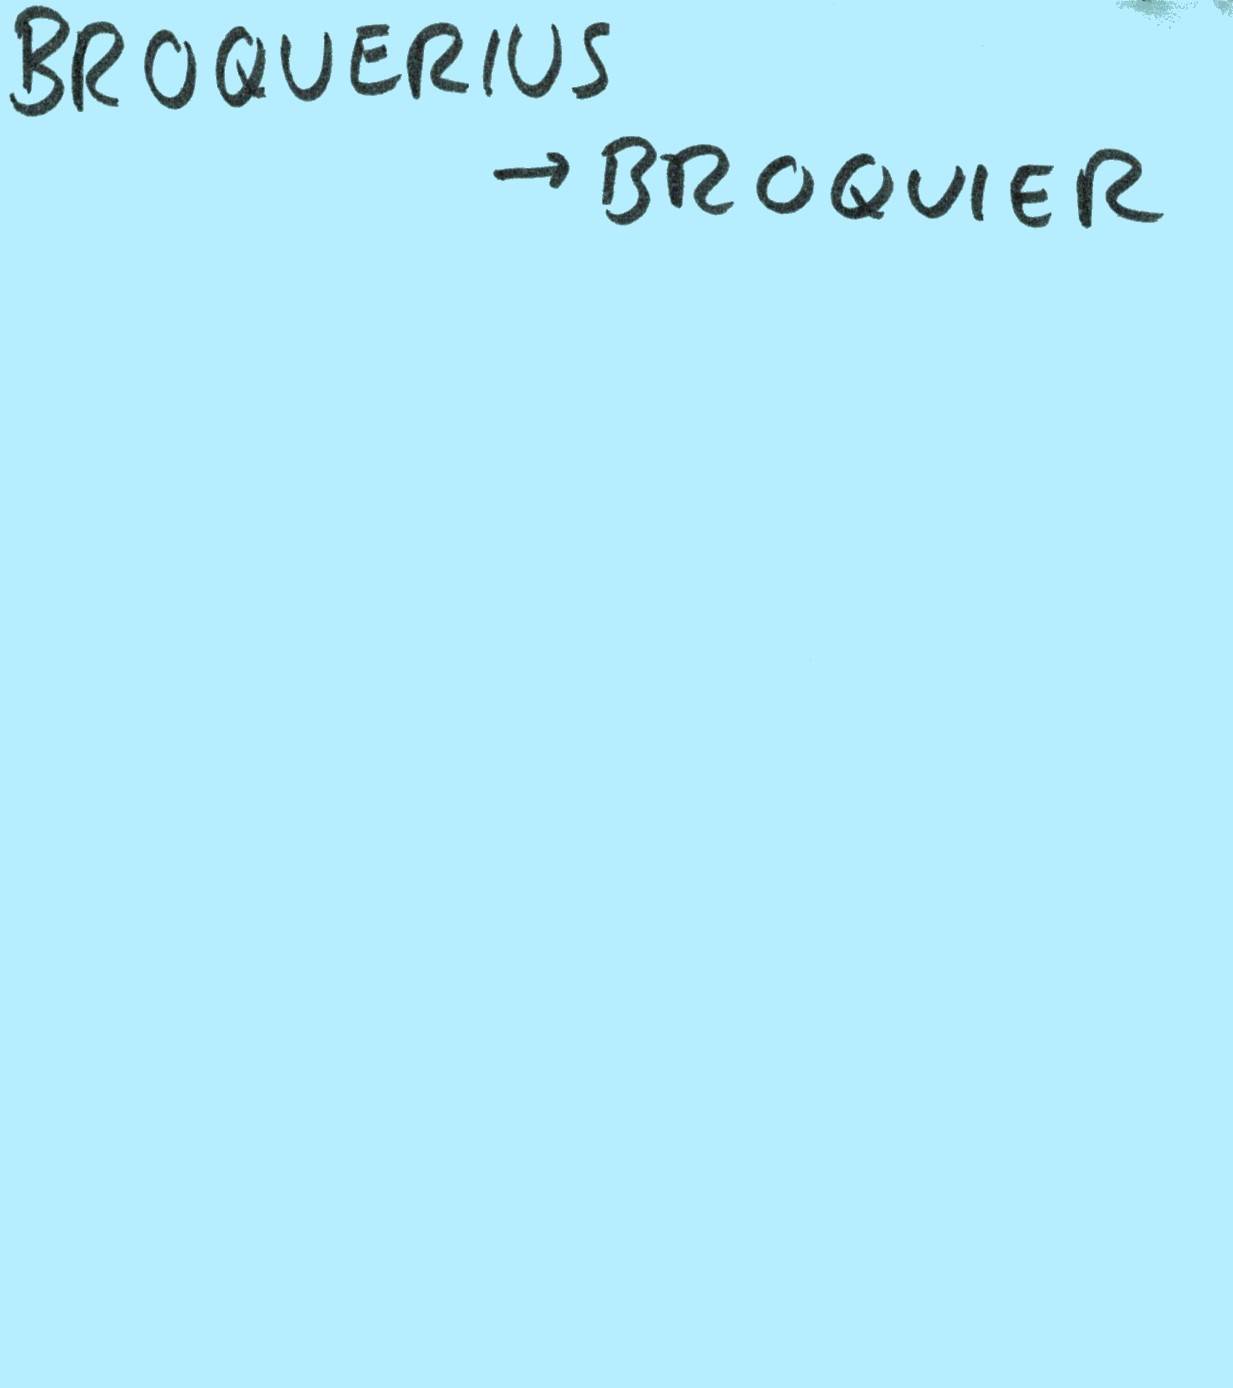 BROQUERIUS
→ BROQUIER